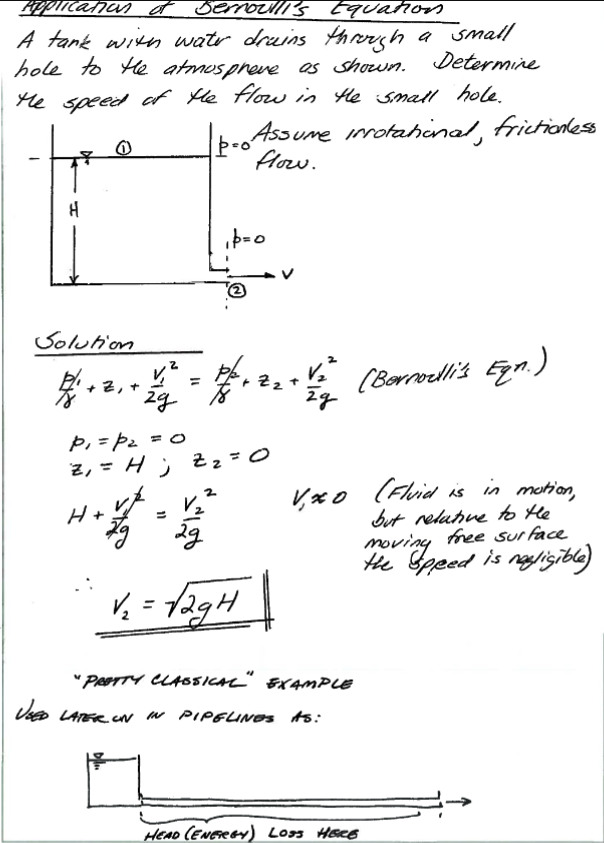 Application of Bernoulli's Equation
A tank with watr drains through a small
hole to the atmosphere as shown. Determine
the speed of the flow in the small hole.
Assume irrotational, frictionless
flow.
①
p=0
H
p=0
V
②
Solution
p₁/γ + z₁ + V₁²/2g = p₂/γ + z₂ + V₂²/2g (Bernoulli's Eqn.)
p₁ = p₂ = 0
z₁ = H ; z₂ = 0
H + V₁²/2g = V₂²/2g
V₁ ≈ 0 (Fluid is in motion,
but relative to the
moving free surface
the speed is negligible)
∴ V₂ = √2gH
"PRETTY CLASSICAL" EXAMPLE
USED LATER ON IN PIPELINES AS:
HEAD (ENERGY) LOSS HERE